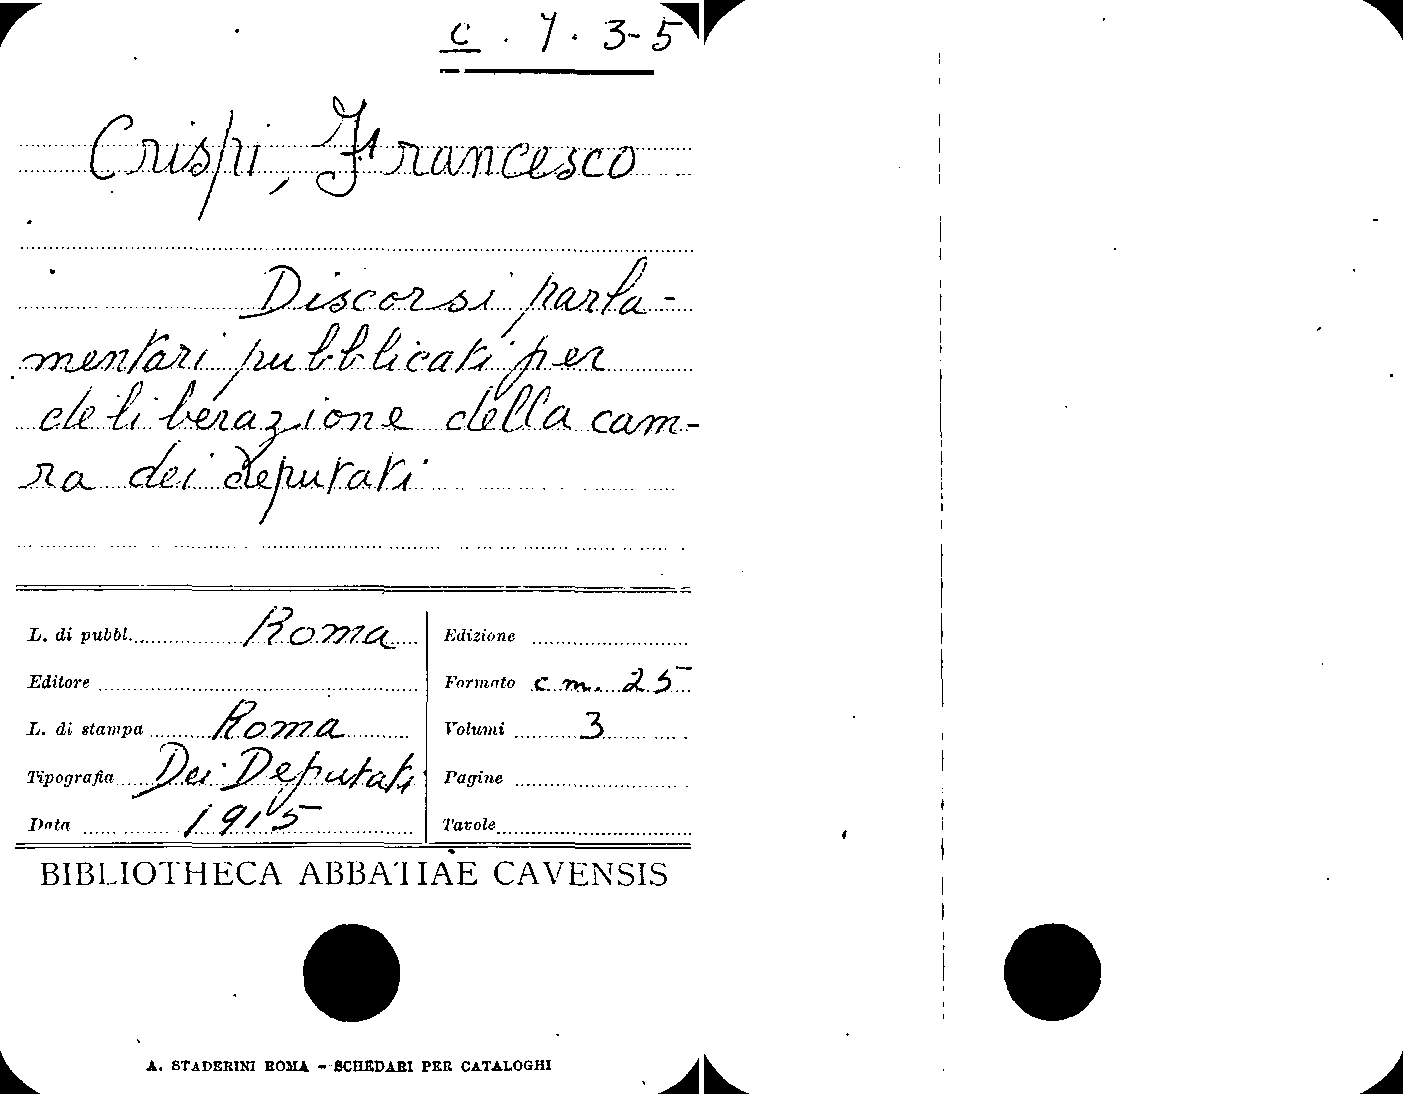 C. 7. 3-5
Crispi, Francesco
Discorsi parla-
mentari pubblicati per
deliberazione della cam-
ra dei deputati
L. di pubbl. Roma
Edizione
Editore
Formato cm. 25
L. di stampa Roma
Volumi 3
Tipografia Dei Deputati
Pagine
Data 1915
Tavole
BIBLIOTHECA ABBATIAE CAVENSIS
A. STADERINI ROMA - SCHEDARI PER CATALOGHI